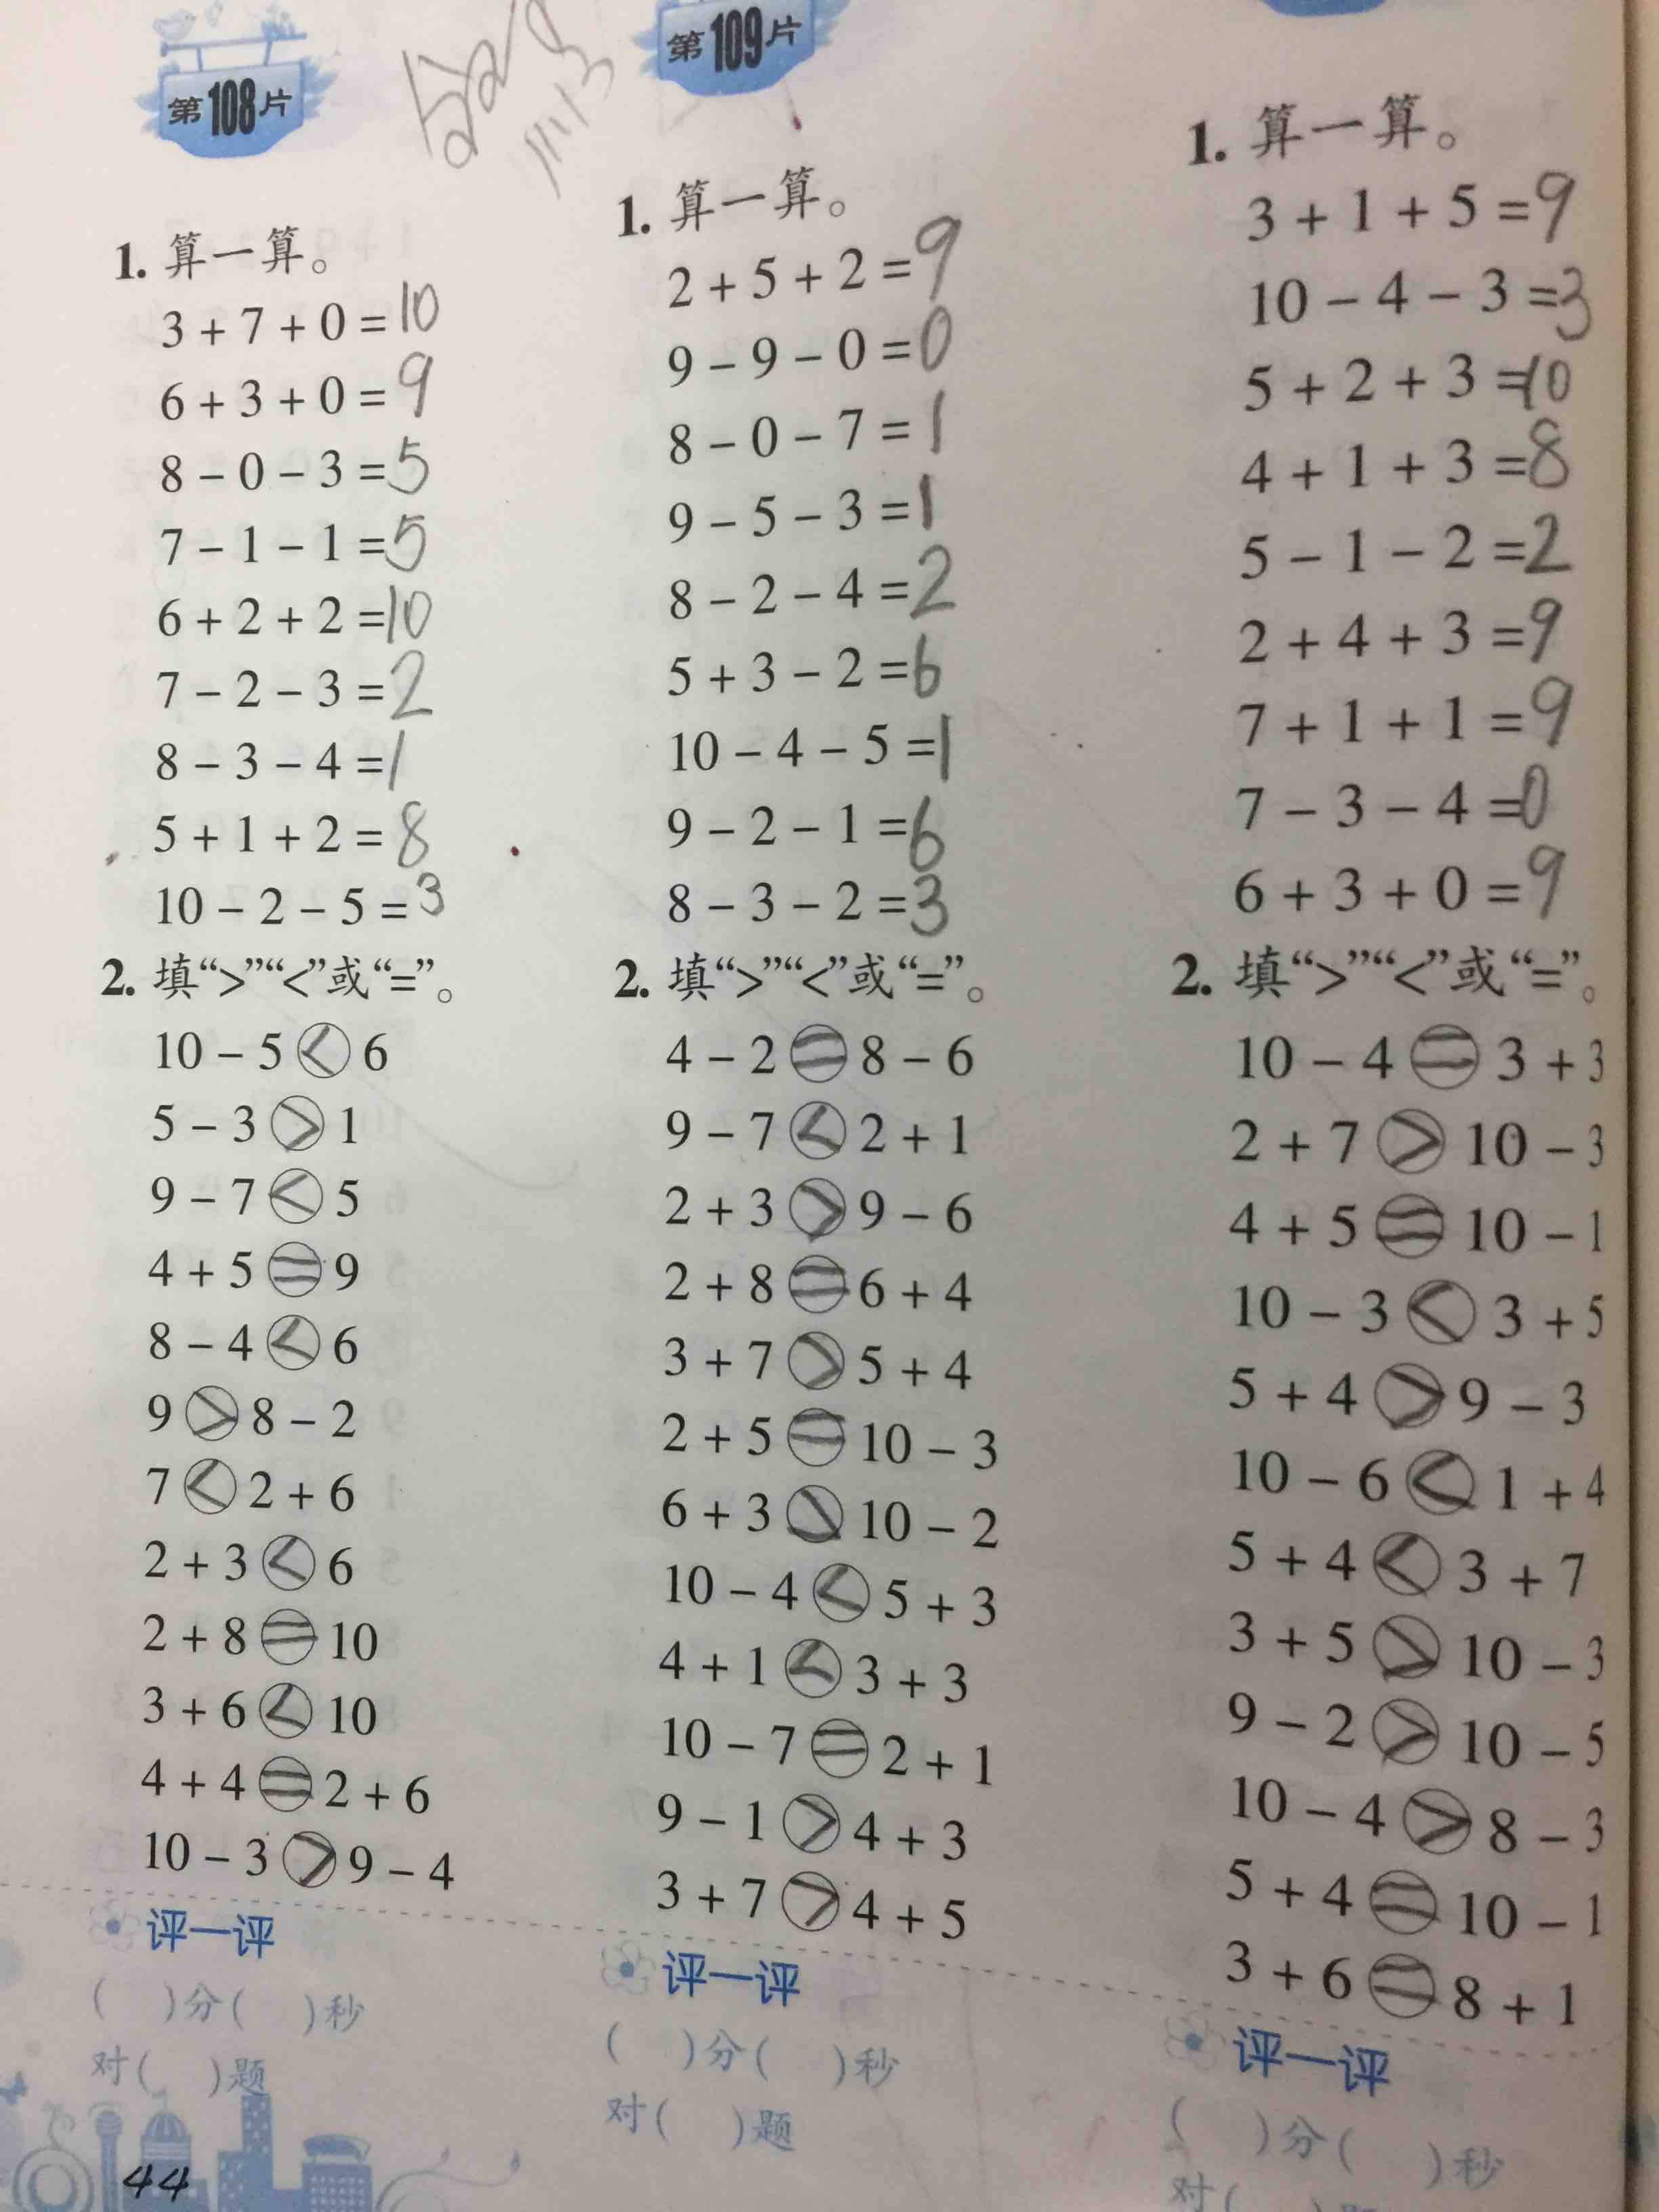 第108片
1. 算一算。
3 + 7 + 0 = 10
6 + 3 + 0 = 9
8 - 0 - 3 = 5
7 - 1 - 1 = 5
6 + 2 + 2 = 10
7 - 2 - 3 = 2
8 - 3 - 4 = 1
5 + 1 + 2 = 8
10 - 2 - 5 = 3
2. 填“>”“<”或“=”。
10 - 5 < 6
5 - 3 > 1
9 - 7 < 5
4 + 5 = 9
8 - 4 < 6
9 > 8 - 2
7 < 2 + 6
2 + 3 < 6
2 + 8 = 10
3 + 6 < 10
4 + 4 = 2 + 6
10 - 3 > 9 - 4
评一评
( )分( )秒
对( )题
44
第109片
1. 算一算。
2 + 5 + 2 = 9
9 - 9 - 0 = 0
8 - 0 - 7 = 1
9 - 5 - 3 = 1
8 - 2 - 4 = 2
5 + 3 - 2 = 6
10 - 4 - 5 = 1
9 - 2 - 1 = 6
8 - 3 - 2 = 3
2. 填“>”“<”或“=”。
4 - 2 = 8 - 6
9 - 7 < 2 + 1
2 + 3 > 9 - 6
2 + 8 = 6 + 4
3 + 7 > 5 + 4
2 + 5 = 10 - 3
6 + 3 > 10 - 2
10 - 4 < 5 + 3
4 + 1 < 3 + 3
10 - 7 = 2 + 1
9 - 1 > 4 + 3
3 + 7 > 4 + 5
评一评
( )分( )秒
对( )题
1. 算一算。
3 + 1 + 5 = 9
10 - 4 - 3 = 3
5 + 2 + 3 = 10
4 + 1 + 3 = 8
5 - 1 - 2 = 2
2 + 4 + 3 = 9
7 + 1 + 1 = 9
7 - 3 - 4 = 0
6 + 3 + 0 = 9
2. 填“>”“<”或“=”。
10 - 4 = 3 + 3
2 + 7 > 10 - 3
4 + 5 = 10 - 1
10 - 3 < 3 + 5
5 + 4 > 9 - 3
10 - 6 < 1 + 4
5 + 4 < 3 + 7
3 + 5 > 10 - 3
9 - 2 > 10 - 5
10 - 4 > 8 - 3
5 + 4 = 10 - 1
3 + 6 = 8 + 1
评一评
( )分( )秒
对(